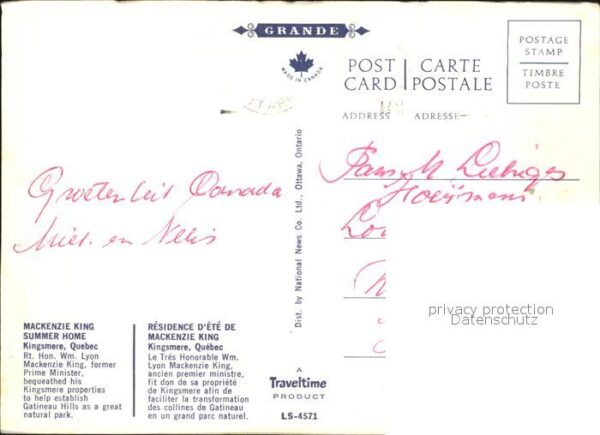 GRANDE
MADE IN CANADA
POST CARD
CARTE POSTALE
ADDRESS
ADRESSE
POSTAGE
STAMP
TIMBRE
POSTE
Groeten uit Canada
Miel. en Nelis
Fam. M
Dist. by National News Co. Ltd., Ottawa, Ontario
privacy protection
Datenschutz
MACKENZIE KING
SUMMER HOME
Kingsmere, Quebec
Rt. Hon. Wm. Lyon
Mackenzie King, former
Prime Minister,
bequeathed his
Kingsmere properties
to help establish
Gatineau Hills as a great
natural park.
RÉSIDENCE D'ÉTÉ DE
MACKENZIE KING
Kingsmere, Québec
Le Trés Honorable Wm.
Lyon Mackenzie King,
ancien premier ministre,
fit don de sa propriété
de Kingsmere afin de
faciliter la transformation
des collines de Gatineau
en un grand parc naturel.
A
Traveltime
PRODUCT
LS-4571